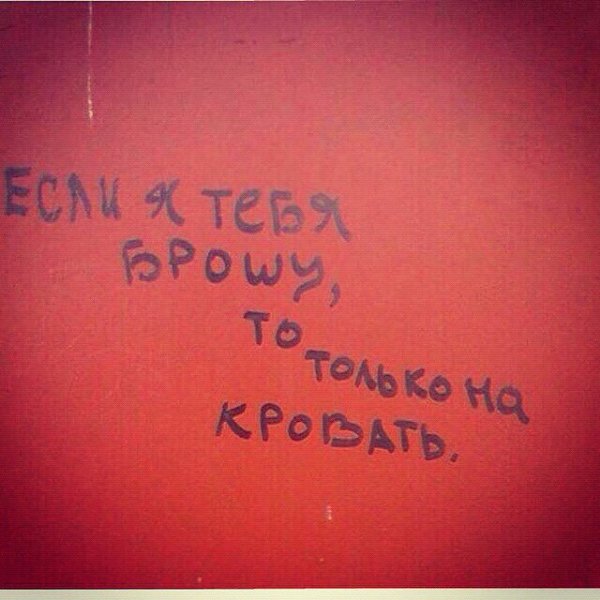 ЕСЛИ Я ТЕБЯ
БРОШУ,
ТО
ТОЛЬКО НА
КРОВАТЬ.